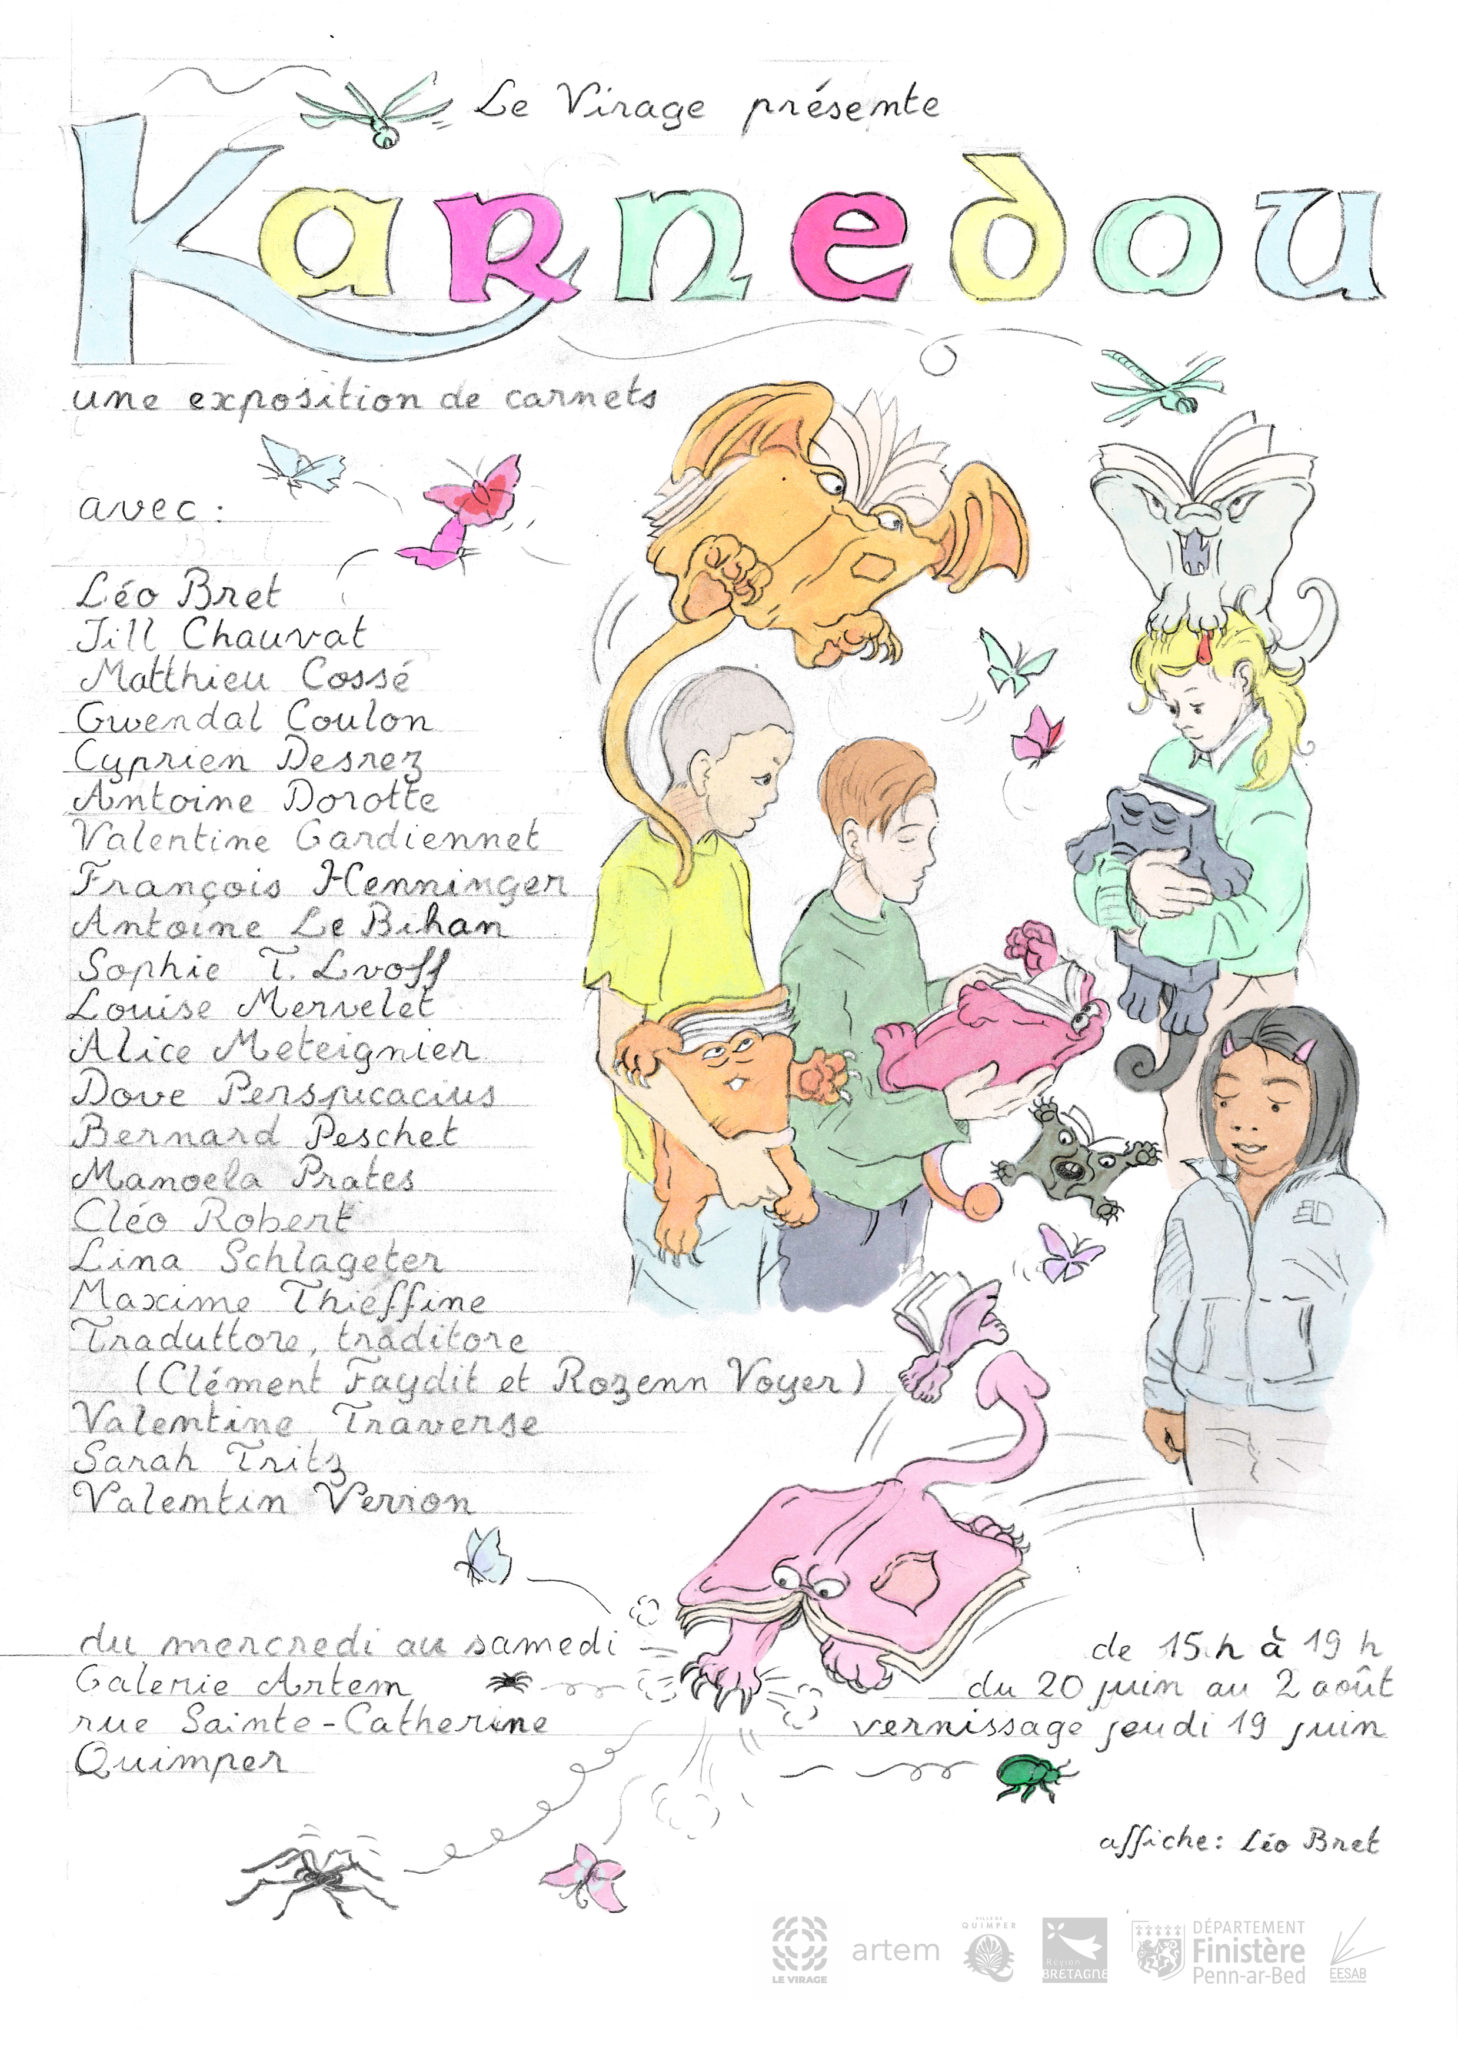 Le Virage présente
Karnedou
une exposition de carnets
avec :
Léo Bret
Jill Chauvat
Matthieu Cossé
Gwendal Coulon
Cyprien Desrez
Antoine Dorotte
Valentine Gardiennet
François Henninger
Antoine Le Bihan
Sophie T. Lvoff
Louise Mervelet
Alice Meteignier
Dove Perspicacius
Bernard Peschet
Manoela Prates
Cléo Robert
Lina Schlageter
Maxime Thieffine
Traduttore, traditore
(Clément Faydit et Rozenn Voyer)
Valentine Traverse
Sarah Tritz
Valentin Verron
du mercredi au samedi
Galerie Artem
rue Sainte-Catherine
Quimper
de 15 h à 19 h
du 20 juin au 2 août
vernissage jeudi 19 juin
affiche : Léo Bret
LE VIRAGE
artem
VILLE DE
QUIMPER
Région
BRETAGNE
DÉPARTEMENT
Finistère
Penn-ar-Bed
EESAB